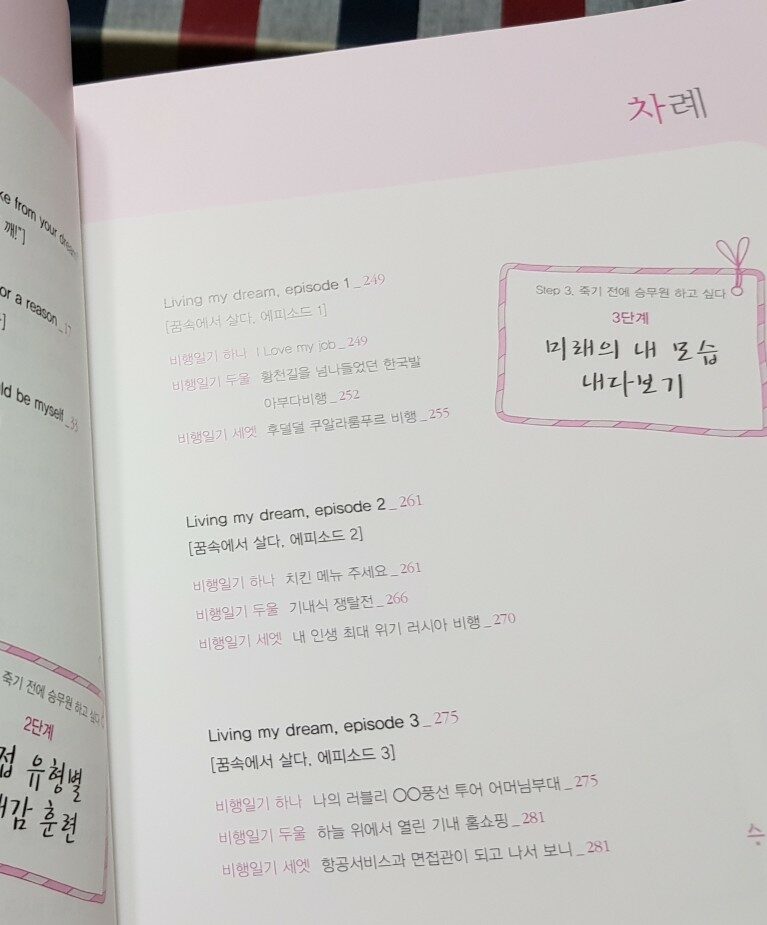 ke from your dream
깨!"]
or a reason_17
ld be myself_33
죽기 전에 승무원 하고 싶다
2단계
접 유형별
감 훈련
차례
Living my dream, episode 1_249
[꿈속에서 살다, 에피소드 1]
비행일기 하나 I Love my job_249
비행일기 두울 황천길을 넘나들었던 한국발
아부다비행_252
비행일기 세엣 후덜덜 쿠알라룸푸르 비행_255
Step 3. 죽기 전에 승무원 하고 싶다
3단계
미래의 내 모습
내다보기
Living my dream, episode 2_261
[꿈속에서 살다, 에피소드 2]
비행일기 하나 치킨 메뉴 주세요_261
비행일기 두울 기내식 쟁탈전_266
비행일기 세엣 내 인생 최대 위기 러시아 비행_270
Living my dream, episode 3_275
[꿈속에서 살다, 에피소드 3]
비행일기 하나 나의 러블리 〇〇풍선 투어 어머님부대_275
비행일기 두울 하늘 위에서 열린 기내 홈쇼핑_281
비행일기 세엣 항공서비스과 면접관이 되고 나서 보니_281